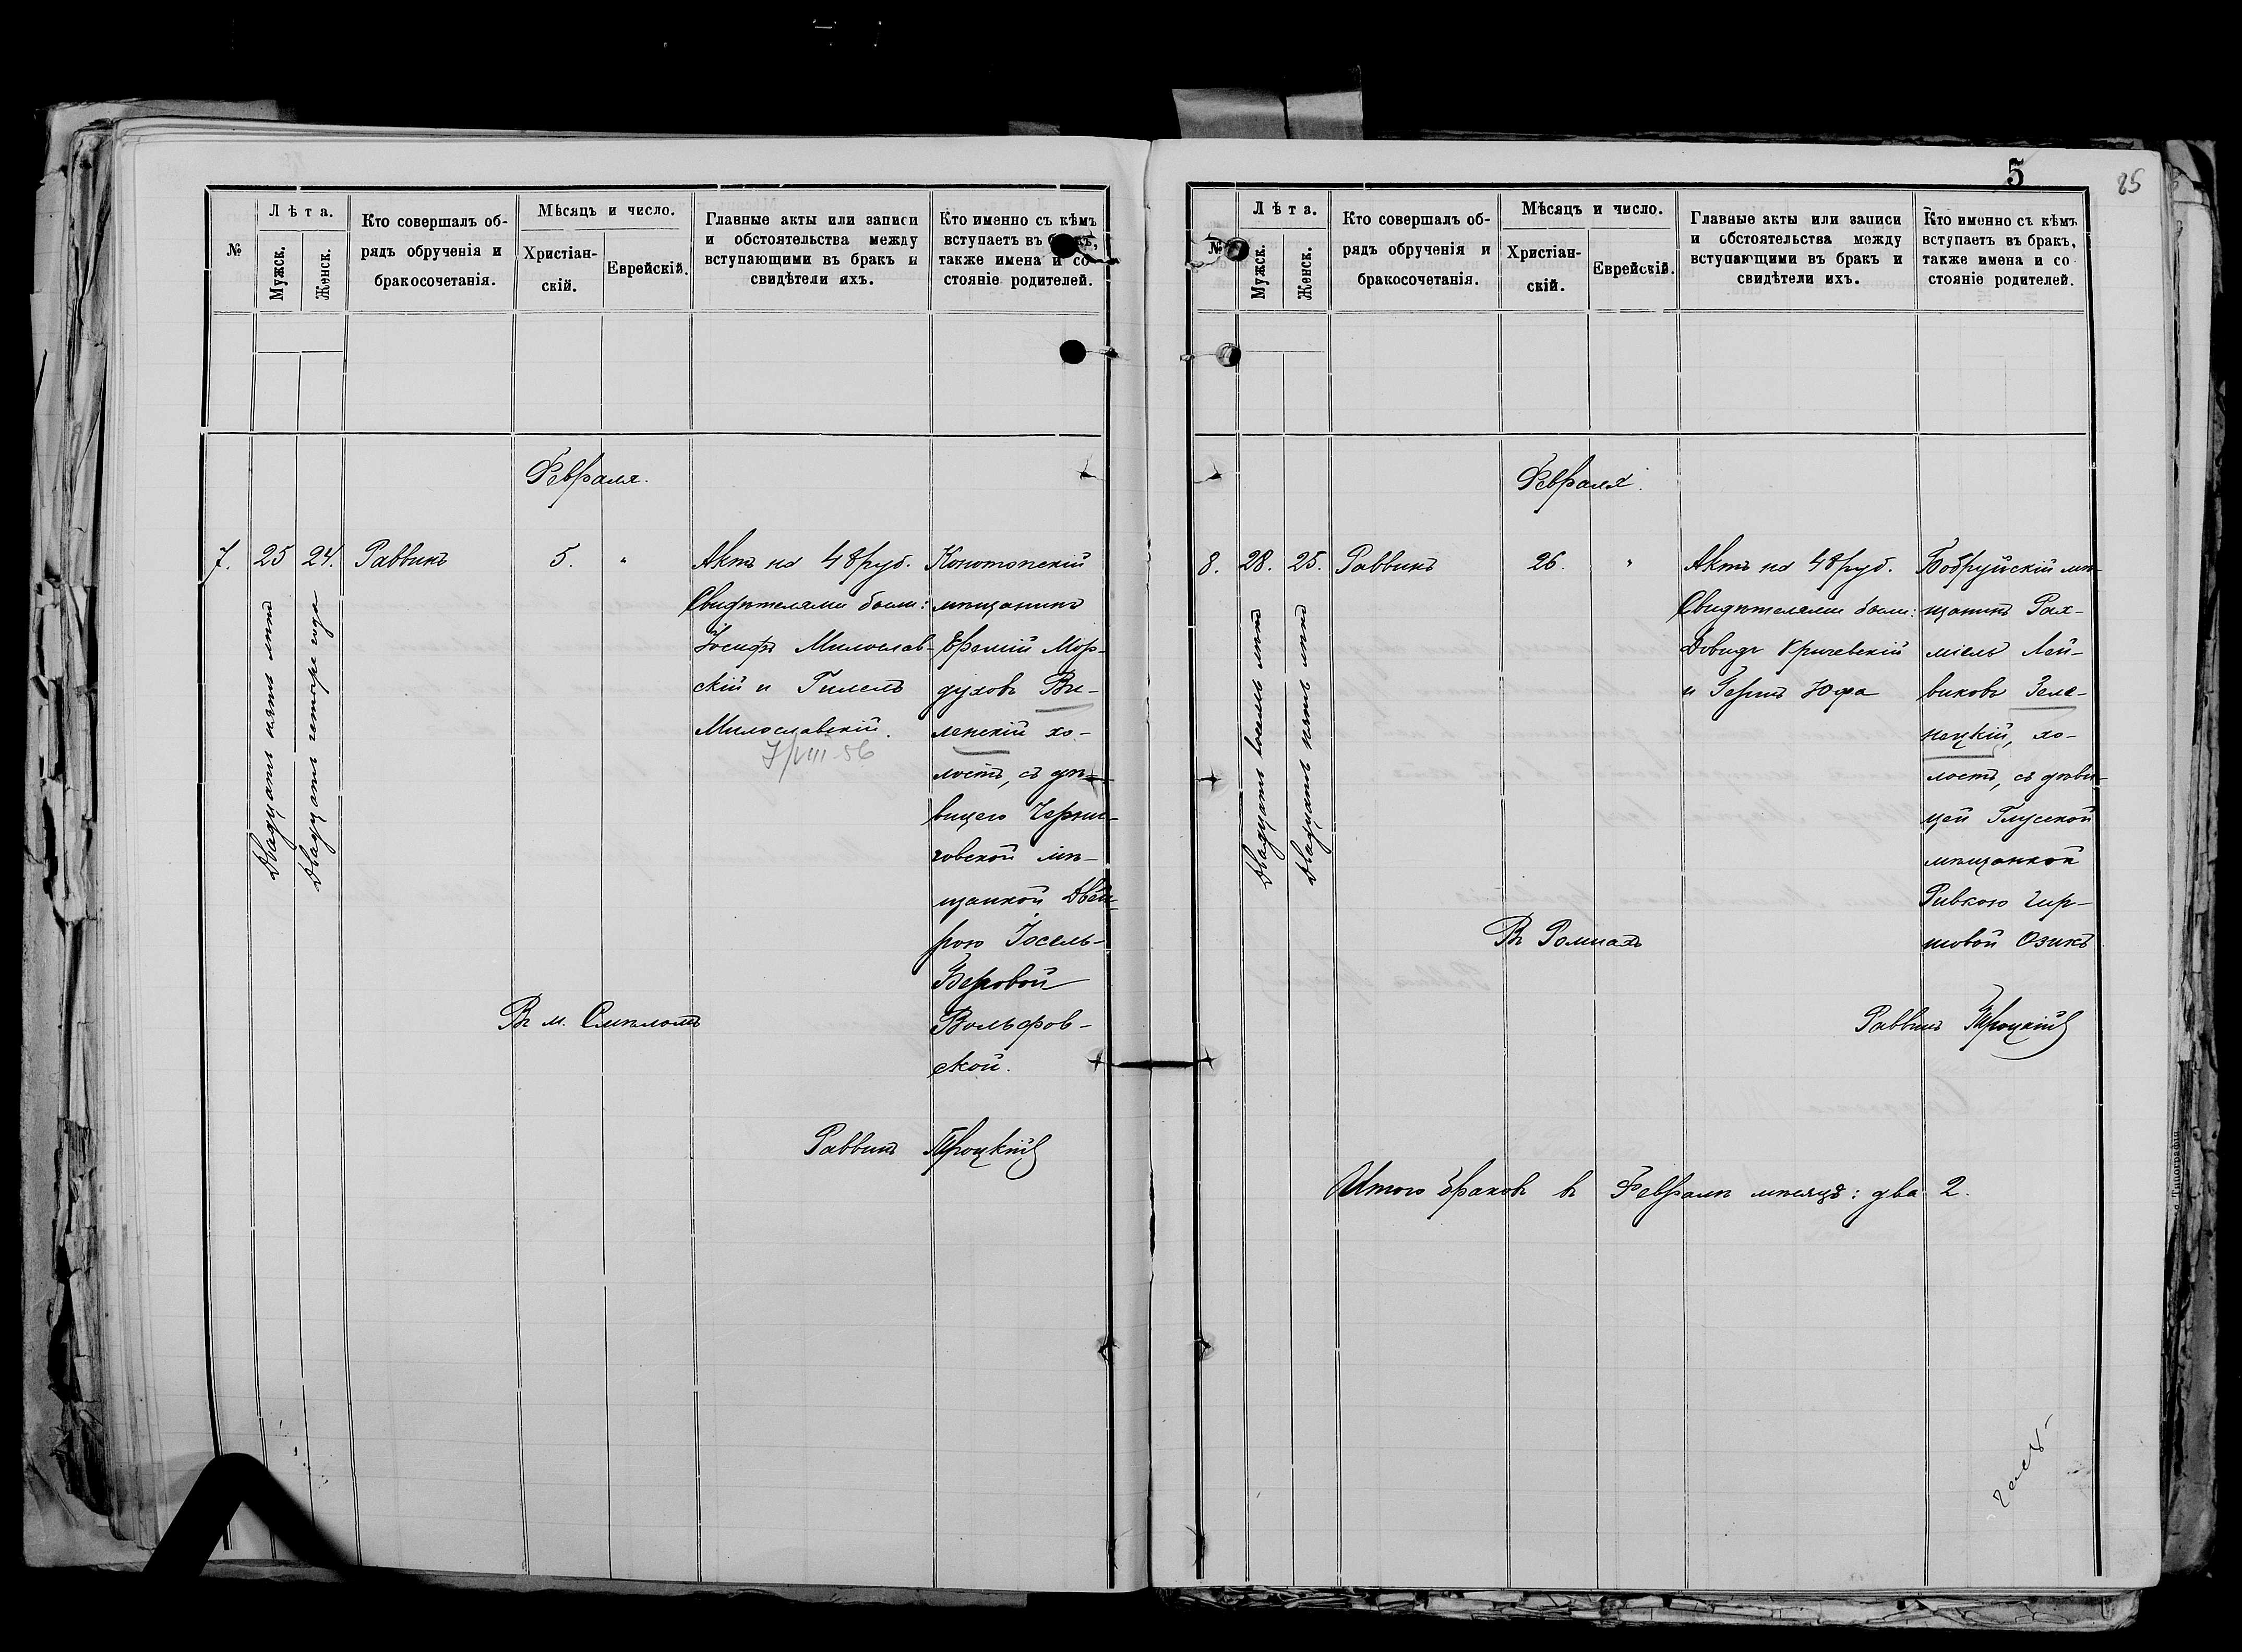 №
Лѣта.
Мужск.
Женск.
Кто совершалъ об-
рядъ обрученія и
бракосочетанія.
Мѣсяцъ и число.
Христіан-
скій.
Еврейскій.
Главные акты или записи
и обстоятельства между
вступающими въ бракъ и
свидѣтели ихъ.
Кто именно съ кѣмъ
вступаетъ въ бракъ,
также имена и со
стояніе родителей.
Февраля.
7.
25
24.
Двадцать пять лѣтъ
Двадцать четыре года
Раввинъ
5.
"
Актъ на 48 руб.
Свидѣтелями были:
Іосифъ Милослав-
скій и Гилель
Милославскій.
7/VIII-56
Конотопскій
мѣщанинъ
Ефремій Мор-
духовъ Ви-
ленскій хо-
лостъ, съ дѣ-
вицею Черни-
говской мѣ-
щанкой Двей-
рою Іосель-
Беровой
Вольфов-
ской.
Въ м. Смѣломъ
Раввинъ Троцкій
5
85
№
Лѣта.
Мужск.
Женск.
Кто совершалъ об-
рядъ обрученія и
бракосочетанія.
Мѣсяцъ и число.
Христіан-
скій.
Еврейскій.
Главные акты или записи
и обстоятельства между
вступающими въ бракъ и
свидѣтели ихъ.
Кто именно съ кѣмъ
вступаетъ въ бракъ,
также имена и со
стояніе родителей.
Февраля.
8.
28.
25.
Двадцать восемь лѣтъ
Двадцать пять лѣтъ
Раввинъ
26.
"
Актъ на 48 руб.
Свидѣтелями были:
Довидъ Кричевскій
и Гершъ Юфа
Бобруйскій мѣ-
щанинъ Рах-
міель Лей-
виковъ Зеле-
нецкій, хо-
лостъ, съ дѣви-
цей Глусской
мѣщанкой
Ривкою Гир-
шовой Озикъ
Въ Ромнахъ
Раввинъ Троцкій
Итого браковъ въ Февралѣ мѣсяцѣ: два 2.